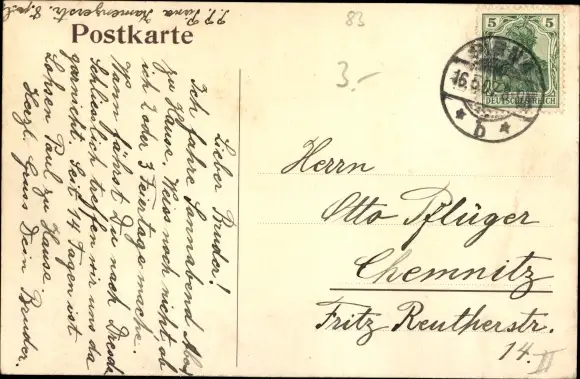 P. P. Pirna Kamenzerstr. 8 pt.
Postkarte
Lieber Bruder!
Ich fahre Sonnabend Abe
zu Hause. Weiss noch nicht ob
ich 2 oder 3 Feiertage mache.
Wann fährst Du nach Dresd
Schliesslich treffen wir uns da
garnicht. Seit 14 Tagen ist
Lohsen Paul zu Hause.
Herzl. Gruss Dein Bruder.
83
3.-
5 5
DEUTSCHES REICH
16.5.
* b *
Herrn
Otto Pflüger
Chemnitz
Fritz Reutherstr.
14. II